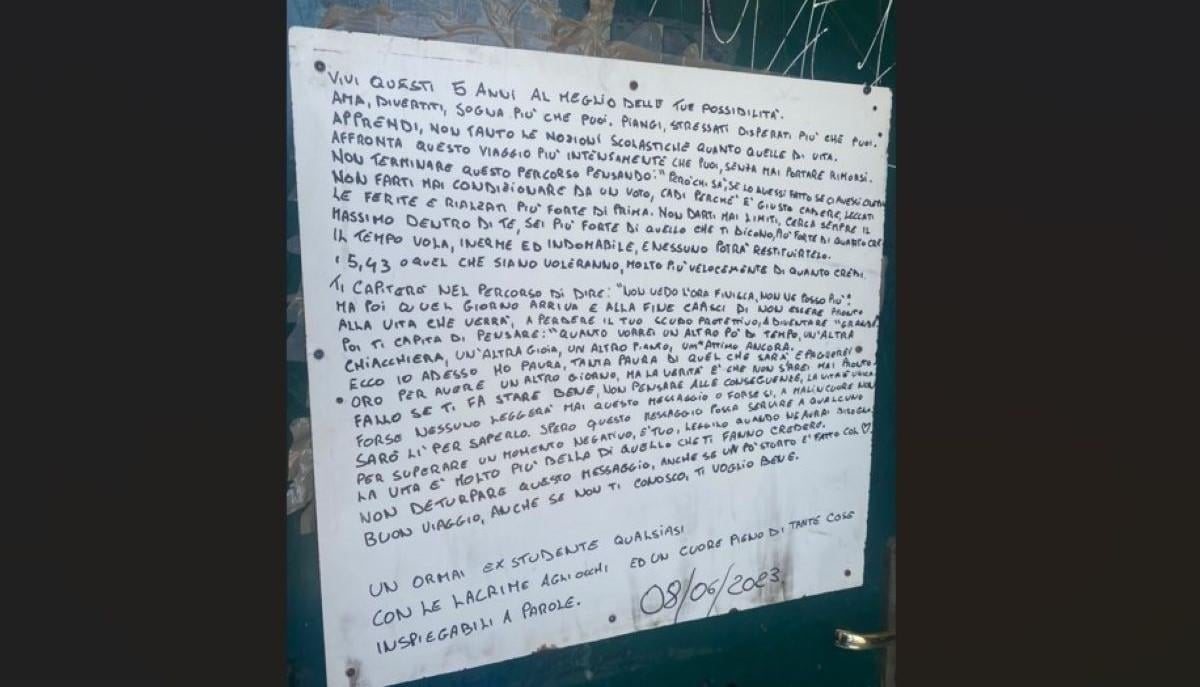 VIVI QUESTI 5 ANNI AL MEGLIO DELLE TUE POSSIBILITA'.
AMA, DIVERTITI, SOGNA PIU' CHE PUOI. PIANGI, STRESSATI DISPERATI PIU' CHE PUOI.
APPRENDI, NON TANTO LE NOZIONI SCOLASTICHE QUANTO QUELLE DI VITA.
AFFRONTA QUESTO VIAGGIO PIU' INTENSAMENTE CHE PUOI, SENZA MAI PORTARE RIMORSI.
NON TERMINARE QUESTO PERCORSO PENSANDO: "PERO' CHI SA', SE LO AVESSI FATTO SE CI AVESSI
NON FARTI MAI CONDIZIONARE DA UN VOTO, CADI PERCHE' E' GIUSTO CADERE, LECCATI
LE FERITE E RIALZATI PIU' FORTE DI PRIMA. NON DARTI MAI LIMITI, CERCA SEMPRE IL
MASSIMO DENTRO DI TE, SEI PIU' FORTE DI QUELLO CHE TI DICONO, PIU' FORTE DI QUANTO
IL TEMPO VOLA, INERME ED INDOMABILE, E NESSUNO POTRA' RESTITUIRTELO.
I 5,43 O QUEL CHE SIANO VOLERANNO, MOLTO PIU' VELOCEMENTE DI QUANTO CREDI.
TI CAPITERA' NEL PERCORSO DI DIRE: "NON VEDO L'ORA FINISCA, NON NE POSSO PIU'"!
MA POI QUEL GIORNO ARRIVA E ALLA FINE CAPISCI DI NON ESSERE PRONTO
ALLA VITA CHE VERRA', A PERDERE IL TUO SCUDO PROTETTIVO, A DIVENTARE "GRANDE"
POI TI CAPITA DI PENSARE: "QUANTO VORREI UN ALTRO PO' DI TEMPO, UN'ALTRA
CHIACCHIERA, UN'ALTRA GIOIA, UN ALTRO PIANTO, UN ATTIMO ANCORA.
ECCO IO ADESSO HO PAURA, TANTA PAURA DI QUEL CHE SARA' E PAGHEREI
ORO PER AVERE UN ALTRO GIORNO, MA LA VERITA' E' CHE NON SAREI MAI PRONTO.
FALLO SE TI FA STARE BENE, NON PENSARE ALLE CONSEGUENZE, LA VITA E' UNICA.
FORSE NESSUNO LEGGERA' MAI QUESTO MESSAGGIO O FORSE SI, A MALINCUORE NON
SARO' LI' PER SAPERLO. SPERO QUESTO MESSAGGIO POSSA SERVIRE A QUALCUNO
PER SUPERARE UN MOMENTO NEGATIVO, E' TUO, LEGGILO QUANDO NE AVRAI BISOGNO
LA VITA E' MOLTO PIU' BELLA DI QUELLO CHE TI FANNO CREDERE.
NON DETURPARE QUESTO MESSAGGIO, ANCHE SE UN PO' STORTO E' FATTO COL ♡.
BUON VIAGGIO, ANCHE SE NON TI CONOSCO, TI VOGLIO BENE.
UN ORMAI EX STUDENTE QUALSIASI
CON LE LACRIME AGLI OCCHI ED UN CUORE PIENO DI TANTE COSE
INSPIEGABILI A PAROLE.
08/06/2023.